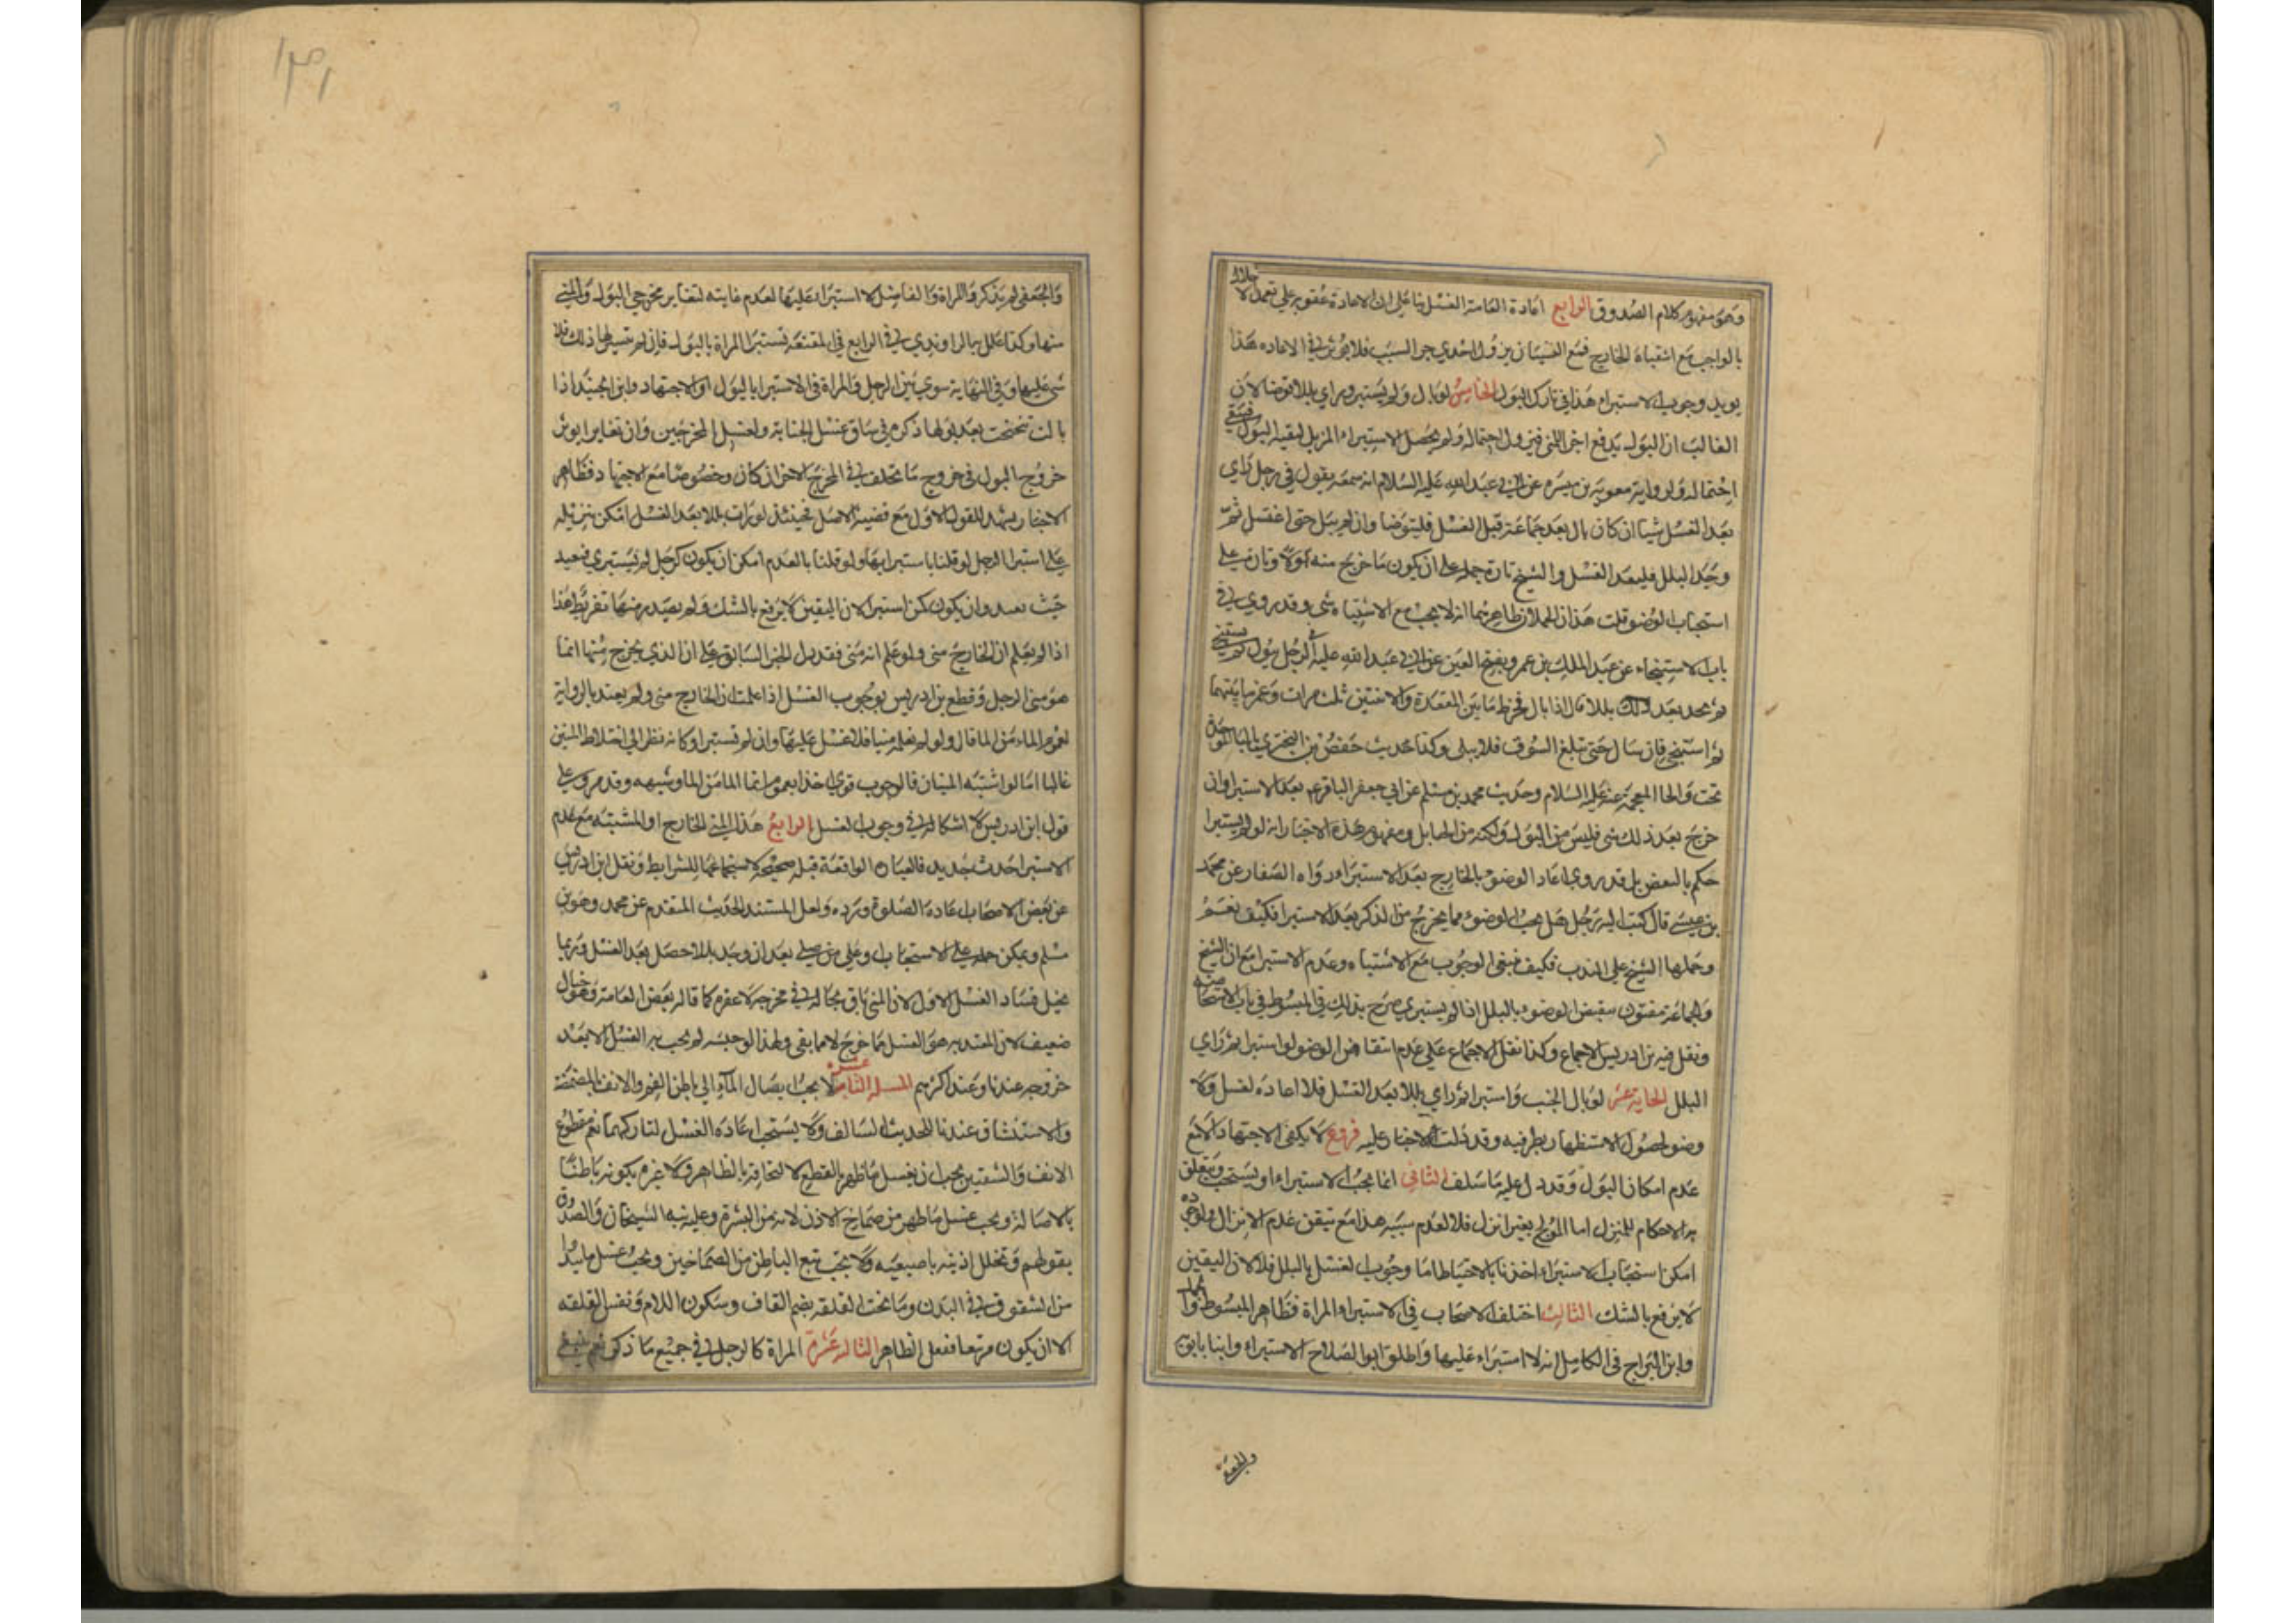 وهو مفهوم كلام الصدوق الرابع اعادة الغسل بنا على ان الاعادة عقوبه على
بالواجب مع اشتباه الخارج فمع النسيان يزول احدي جزى السبب فلا يوثر في الاعاده هذا
يويد وجوب الاستبراء هذا في تارك البول الخامس لو بال ولم يستبر وراي بللا توضا لان
الغالب ان البول يدفع اجزا المني فيزول احتماله ولم يحصل الاستبراء المزيل لبقيه البول فيبقى
احتماله ولرواية معويه بن ميسره عن ابي عبدالله عليه السلام انه سمعه يقول في رجل راي
بعد الغسل شيا ان كان بال بعد جماعه قبل الغسل فليتوضا وان لم يبل حتى اغتسل ثم
وجد البلل فليعد الغسل والشيخ تارة حمله على ان يكون ما خرج منه بولا وتارة على
استحباب الوضو قلت هذان الحملان ظاهرهما انه لا يجب مع الاشتباه شي وقد روي في
باب الاستنجاء عن عبد الملك بن عمرو بفتح العين عن ابي عبد الله عليه في الرجل يبول ثم يستنجي
ثم يجد بعد ذلك بللا قال اذا بال فخرط ما بين المقعدة والانثيين ثلث مرات وغمز ما بينهما
ثم استنجى فان سال حتى تبلغ السوق فلا يبالي وكذا حديث حفص بن البختري بالبا الموحدة
تحت والخا المعجمة عنه عليه السلام وحديث محمد بن مسلم عن ابي جعفر الباقر ع بعد الاستبرا وان
خرج بعد ذلك شي فليس من البول ولكنه من الحبايل ومفهوم هذه الاخبار انه لو لم يستبرا
حكم بالنقض بل قد روي اعاد الوضو بالخارج بعد الاستبراء ورواه الصفار عن محمد
بن عيسى قال كتب اليه رجل هل يجب الوضوء مما يخرج من الذكر بعد الاستبرا فكتب نعم
وحملها الشيخ على الندب فكيف ينفى الوجوب مع الاشتباه وعدم الاستبرا مع ان الشيخ
والجماعة مفتون بنقض الوضوء بالبلل اذا لم يستبري صرح بذلك في المبسوط في باب الاستحاضه
ونقل فيه بن ادريس الاجماع وكذا نقل الاجماع على عدم انتقاض الوضو لو استبرا ثم راي
البلل الحاية عشر لو بال الجنب واستبرا ثم راي بللا بعد الغسل فلا اعاده لغسل ولا
وضو لحصول الاستظهار بطرفيه وقد دلت الاخبار عليه فروع لا يكفى الاجتهاد الا مع
عدم امكان البول وقد دل عليه ما سلف الثاني انما يجب الاستبراء او يستحب ويتعلق
به الاحكام للمنزل اما المولج بغير انزال فلا لعدم سببه هذا مع تيقن عدم الانزال ولو جوزه
امكن استحباب الاستبراء اخذنا بالاحتياط اما وجوب الغسل بالبلل فلا لان اليقين
لا يرفع بالشك الثالث اختلف الاصحاب في الاستبراء والمراة فظاهر المبسوط والجمل
وابن البراج في الكامل انه لا استبراء عليها واطلق ابو الصلاح الاستبراء وابنا بابويه
والجعفي
١٣١
والجعفي لم يذكر والمراة والفاضل لا استبراء عليها لعدم فايته لتغاير مخرجي البول والمني
منها وكذا علل به الراوندي في الرابع في المقنعة تستبرا المراة بالبول فان لم يتيسر لها ذلك فلا
شي عليها وفي النهاية سوي بين الرجل والمراة في الاستبرا بالبول او الاجتهاد وابن الجنيد اذا
بالت تنحنحت بعد بولها ذكره في سياق غسل الجنابة ولعل المخرجين وان تغايرا يوثر
خروج البول في خروج ما تخلف في المخرج الاخر ان كان وخصوصا مع الاجتهاد فظاهر
الاخبار يشهد للقول الاول مع قضية الاصل فحينئذ لو رات بللا بعد الغسل امكن تنزيله
على استبرا الرجل لو قلنا باستبرايها ولو قلنا بالعدم امكن ان يكون كرجل لم يستبري فيعيد
حيث يعيد وان يكون كمن استبرا لان اليقين لا يرفع بالشك ولم يصدر منها تفريط هذا
اذا لم يعلم ان الخارج مني ولو علم انه مني فقد دل الخبر السابق على ان الذي يخرج منها انما
هو مني الرجل وقطع بن ادريس بوجوب الغسل اذا علمت ان الخارج مني ولم يعتد بالرواية
لعموم الماء من الما قال ولو لم تعلمه منيا فلا غسل عليها وان لم تستبر او كانه نظر الى اختلاط المنيين
غالبا اما لو اشتبه المنيان فالوجوب قوي اخذا بعموم انما الما من الما وشبهه وقد مر وعلى
قول ابن ادريس لا اشكال في وجوب الغسل الرابع هذا المني الخارج او المشتبه مع عدم
الاستبرا حدث جديد فالعبادة الواقعة قبله صحيحة لاستجماعها للشرايط ونقل ابن ادريس
عن بعض الاصحاب اعادة الصلوة ورده ولعل المستند الحديث المتقدم عن محمد وهو بن
مسلم ويمكن حمله على الاستحباب وعلى من صلى بعد ان وجد بللا حصل بعد الغسل وربما
يخيل فساد الغسل الاول لان المني باق بحاله في مخرجه لا كما قاله بعض العامة وهو خيال
ضعيف لان المتعبد به هو الغسل مما خرج لا مما بقى ولهذا لو حبسه لم يجب به الغسل الا بعد
خروجه عندنا وعند اكثرهم المسله الثانية عشر لا يجب ايصال الماء الى باطن الفم والانف بالمضمضة
والاستنشاق عندنا للحديث السالف ولا يستحب اعادة الغسل لتاركهما نعم مقطوع
الانف والشفتين يجب ان يغسل ما ظهر بالقطع لالتحاقه بالظاهر ولا بكونه باطنا
بالاصالة ويجب غسل ما ظهر من صماخ الاذن لانه من البشرة وعليه نبه الشيخان والصدوق
بقولهم وتخلل اذنيه باصبعيه ولا يجب تتبع الباطن من الصماخين ويجب غسل ما يبدوا
من الشقوق في البدن وما تحت القلفه بضم القاف وسكون اللام ونفس القلفه
الا ان يكون مرتتقا فنغسل الظاهر الثالثه عشرة المراة كالرجل في جميع ما ذكر نعم ينبغي